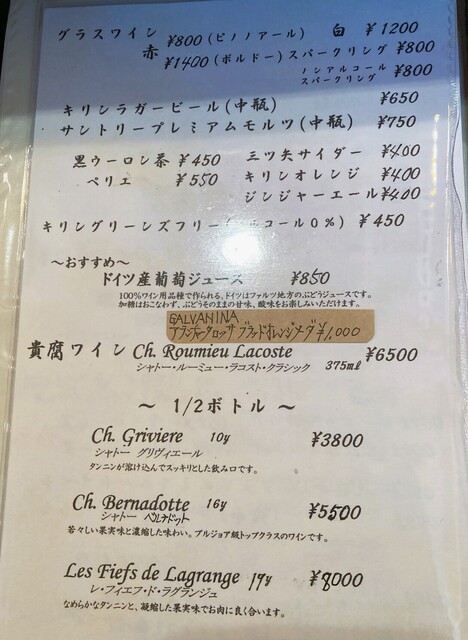 グラスワイン ¥800(ピノノアール) 白 ¥1200
赤 ¥1400(ボルドー)スパークリング ¥800
ノンアルコール
スパークリング ¥800
キリンラガービール(中瓶) ¥650
サントリープレミアムモルツ(中瓶) ¥750
黒ウーロン茶 ¥450 三ツ矢サイダー ¥400
ペリエ ¥550 キリンオレンジ ¥400
ジンジャーエール ¥400
キリングリーンズフリー コール0%) ¥450
~おすすめ~
ドイツ産葡萄ジュース ¥850
100%ワイン用品種で作られる、ドイツはファルツ地方のぶどうジュースです。
加糖はおこなわず、ぶどうそのままの甘味、酸味をお楽しみいただけます。
GALVANINA
アランチャータロッサ ブラッドオレンジ ¥1,000
貴腐ワイン Ch. Roumieu Lacoste 375mℓ ¥6500
シャトー・ルーミュー・ラコスト・クラシック
~ 1/2ボトル ~
Ch. Griviere 10y ¥3800
シャトー グリヴィエール
タンニンが溶け込んでスッキリとした飲み口です。
Ch. Bernadotte 16y ¥5500
シャトー ベルナドット
若々しい果実味と濃縮した味わい。ブルジョア級トップクラスのワインです。
Les Fiefs de Lagrange 17y ¥8000
レ・フィエフ・ド・ラグランジュ
なめらかなタンニンと、凝縮した果実味でお肉に良く合います。